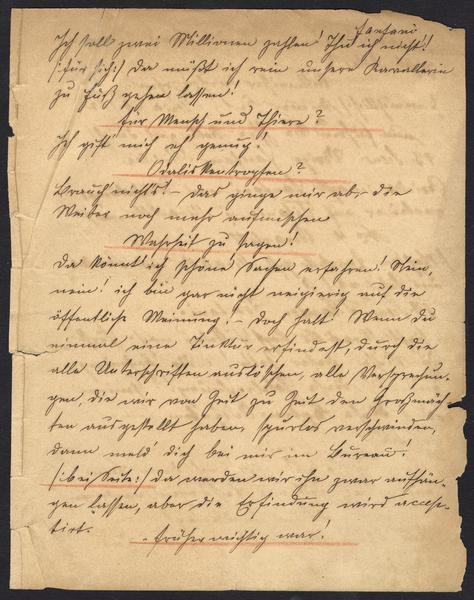 fontani
Ich soll zwei Millionen zahlen! Thu ich nicht!
/:für sich:/ Da müßt ich rein unsere Kavallerie
zu Fuß gehen lassen!
Für Mensch und Thiere?
Ich gift' mich eh' genug!
Odaliskentropfen?
Brauch' nicht's! – Das ginge mir ab, die
Weiber noch mehr aufmischen
Wahrheit zu sagen!
Da könnt' ich schöne Sachen erfahren! Nein,
nein! ich bin gar nicht neugierig auf die
öffentliche Meinung! – Doch halt! Wenn du
einmal eine Tinktur erfindest, durch die
alle Unterschriften auslöschen, alle Versprechun-
gen, die wir von Zeit zu Zeit den Großmäch-
ten ausgestellt haben, spurlos verschwinden,
dann meld' dich bei mir im Bureau!
/:bei Seite:/ da werden wir ihn zwar aufhän-
gen lassen, aber die Erfindung wird accep-
tirt.
früher wichtig war!